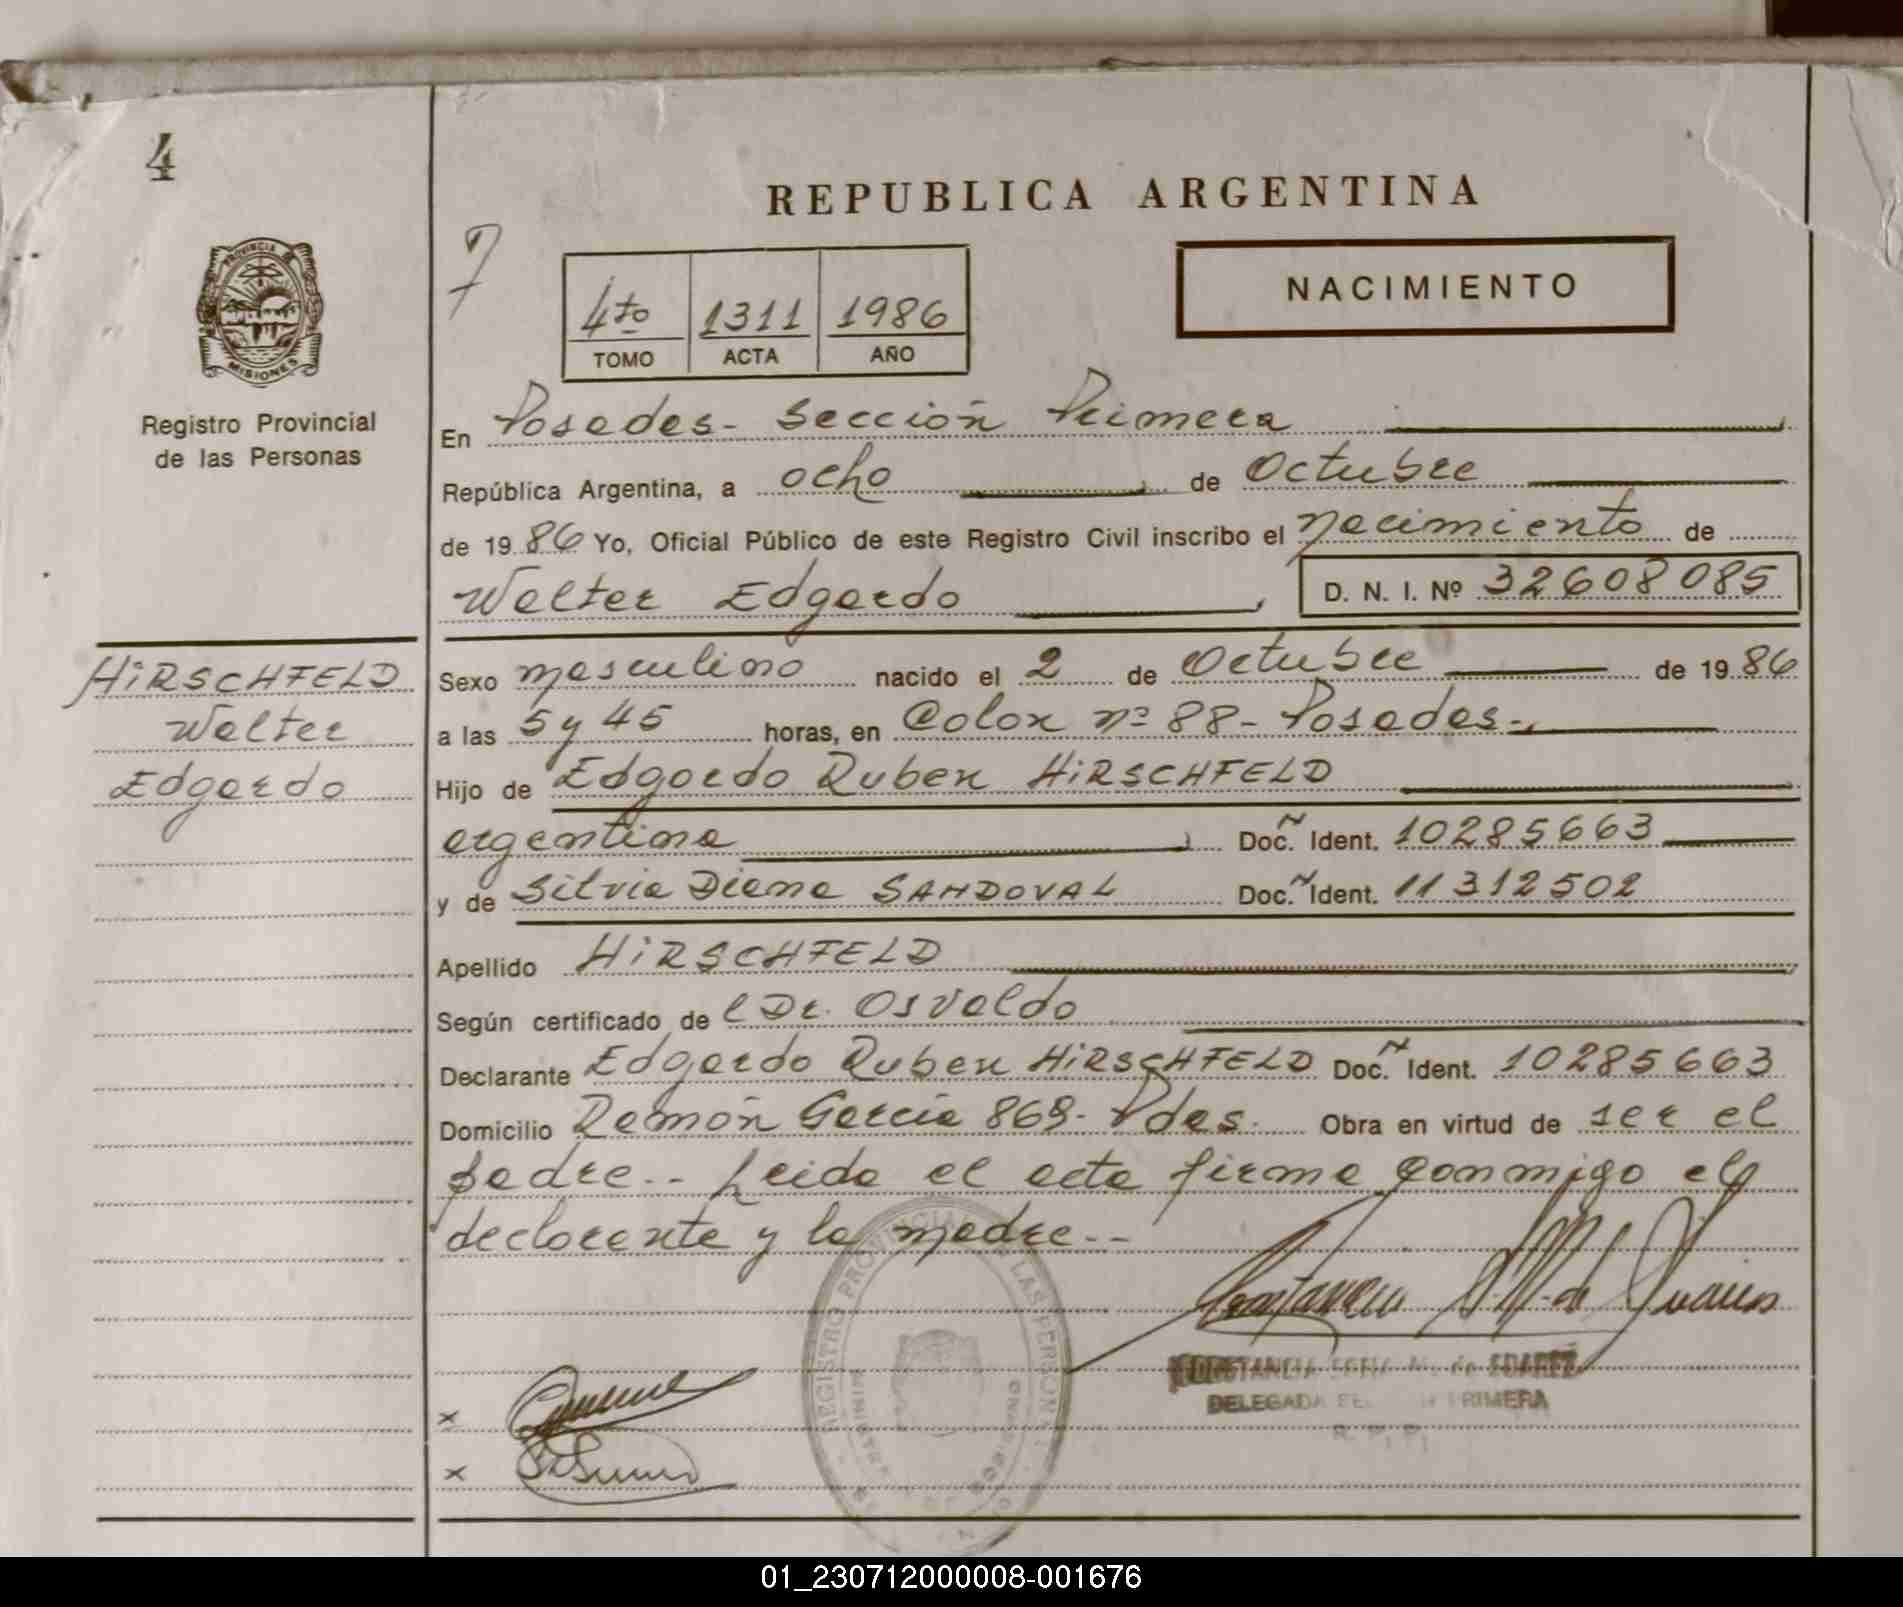 4
REPUBLICA ARGENTINA
7
4to 1311 1986
TOMO ACTA AÑO
NACIMIENTO
PROVINCIA
MISIONES
Registro Provincial
de las Personas
En Posadas- Sección Primera
República Argentina, a ocho de Octubre
de 1986 Yo, Oficial Público de este Registro Civil inscribo el nacimiento de
Walter Edgardo D. N. I. Nº 32608085
HiRSCHFELD
Walter
Edgardo
Sexo masculino nacido el 2 de Octubre de 1986
a las 5 y 45 horas, en Colon nº 88- Posadas-
Hijo de Edgardo Ruben HiRSCHFELD
argentina Doc. Ident. 10285663
y de Silvia Diana SANDOVAL Doc. Ident. 11312502
Apellido HiRSCHFELD
Según certificado de l Dr. Osvaldo
Declarante Edgardo Ruben HiRSCHFELD Doc. Ident. 10285663
Domicilio Ramón García 869- Pdas. Obra en virtud de ser el
padre.- Leida el acta firma conmigo el
declarante y la madre.-
REGISTRO PROVINCIAL DE LAS PERSONAS
CONSTANCIA M. de SUAREZ
DELEGADA PRIMERA
R. P. P.
x
x
01_230712000008-001676